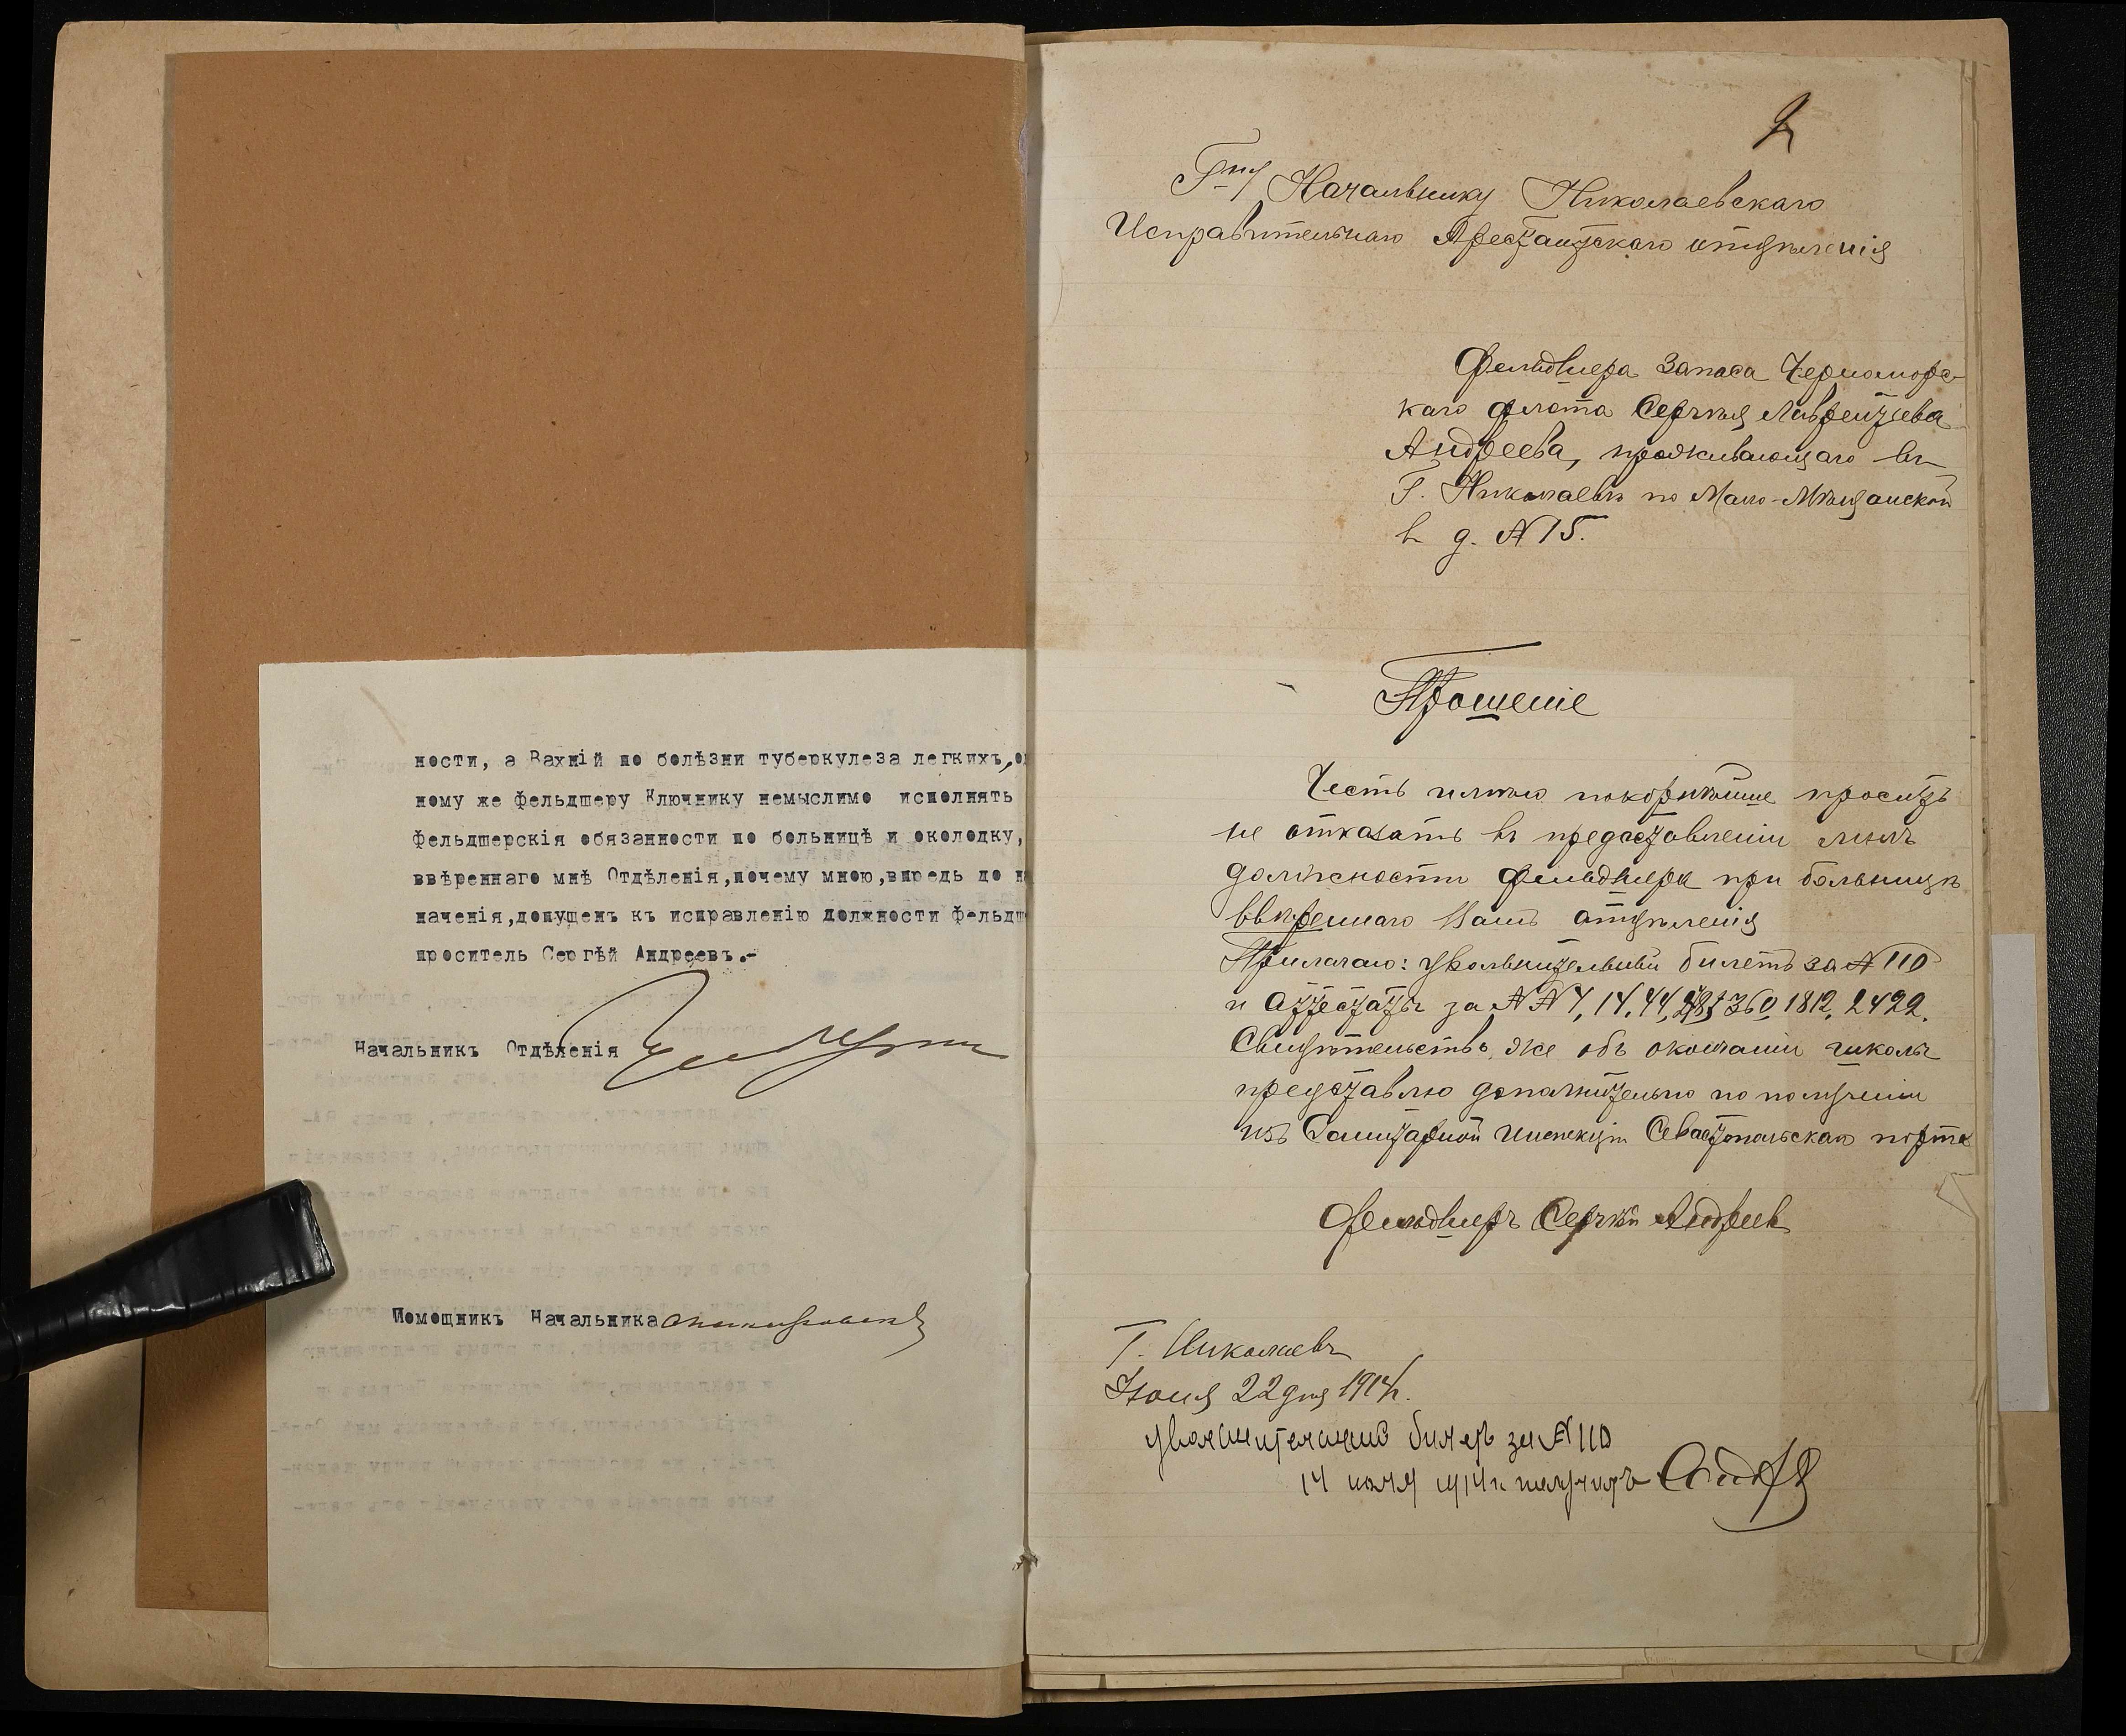 ности, а Вахній по болѣзни туберкулеза легкихъ,
ному же фельдшеру Ключнику немыслимо исполнять
фельдшерскія обязанности по больницѣ и околодку,
ввѣреннаго мнѣ Отдѣленія,почему мною,впредь до
наченія,допущенъ къ исправленію должности фельдш
проситель Сергѣй Андреевъ.-
Начальникъ Отдѣленія
Помощникъ Начальника
2
Г-ну Начальнику Николаевскаго
Исправительнаго Арестантскаго отдѣленія
Фельдшера запаса Черноморс-
каго флота Сергѣя Лаврентьева
Андреева, проживающаго въ
Г. Николаевѣ по Мало-Мѣщанской
въ д. № 15.
Прошеніе
Честь имѣю покорнѣйше просить
не отказать въ предоставленіи мнѣ
должности фельдшера при больницѣ
ввѣреннаго Вамъ отдѣленія
Прилагаю: увольнительный билетъ за № 110
и аттестаты за №№ 7, 14, 44, 360, 1812, 2422.
Свидѣтельство же объ окончаніи школы
представлю дополнительно по полученіи
изъ Санитарной инспекціи Севастопольскаго порта
Фельдшеръ Сергѣй Андреевъ
Г. Николаевъ
Іюня 22 дня 1914 г.
увольнительный билетъ за № 110
14 іюля 1914 г. получилъ